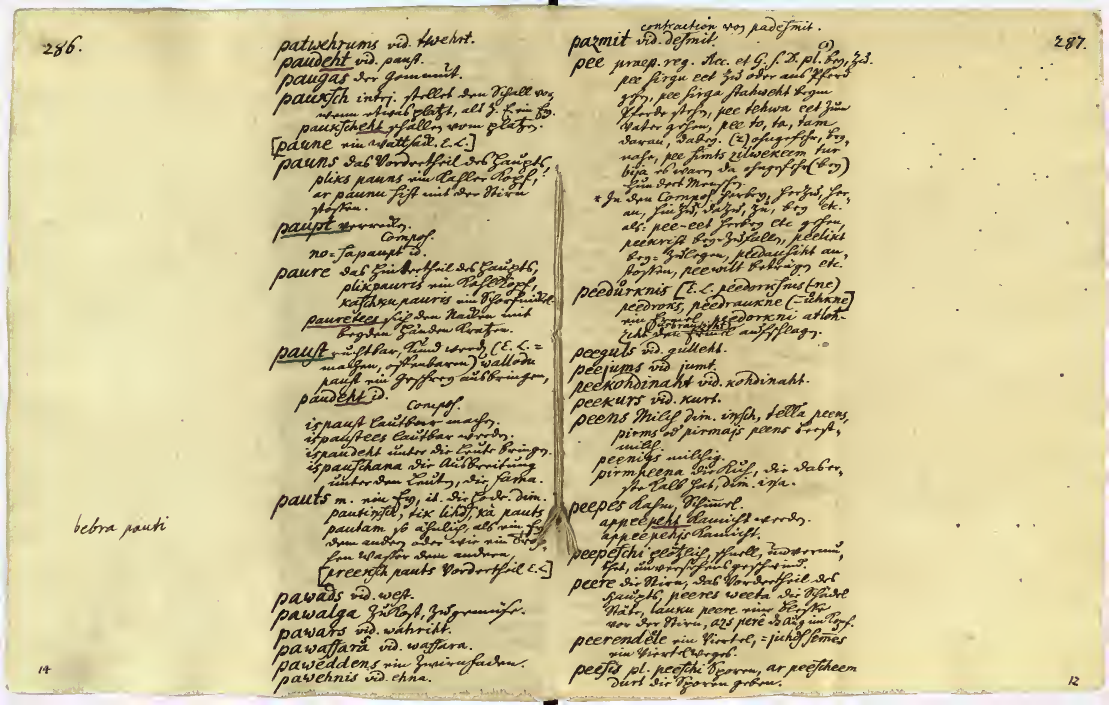 286.
patwehrums vid. twehrt.
paudeht vid. paust.
paugas der
pauksch interj. stellet den Schall vor
wenn etwas platzt, als z. E. ein Ey.
paukscheht schallen vom platzen.
[paune ein E. L.]
pauns das Vordertheil des Haupts,
pliks pauns ein kahler Kopf,
ar paunu sist mit der Stirn
stossen.
paupt
Compos.
no=sapaupt id.
paure das Hintertheil des Haupts,
plikpauris ein Kahlkopf,
kaschku pauris ein
pauretees sich den Nacken mit
beyden Händen kratzen.
paust ruchtbar, kund werden (E. L. =
machen, offenbaren) wallodu
paust ein Geschrey ausbringen,
paudeht id.
Compos.
ispaust lautbar machen.
ispaustees lautbar werden.
ispaudeht unter die Leute bringen.
ispauschana die Ausbreitung
unter den Leuten, die fama.
pauts m. ein Ey, it. die Hode. dim.
pautinsch, tik lihds, kà pauts
pautam so ähnlich, als ein Ey
dem andern oder wie ein Trop-
fen Wasser dem andern,
[preeksch pauts Vordertheil E. L.]
bebra pauti
pawads vid. west.
pawalga Zukost, Zugemüse.
pawars vid. wahriht.
pawassara vid. wassara.
paweddens ein Zwirnfaden.
pawehnis vid. ehna.
14
287.
contraction von padesmit.
pazmit vid. desmit.
pee praep. reg. Acc. et G. s. D. pl. bey, zu.
pee sirgu eet zu oder ans Pferd
gehn, pee sirga stahweht beym
Pferde stehn, pee tehwa eet zum
Vater gehen, pee to, ta, tam
daran, dabey. (2) ohngefehr, bey
nahe, pee simts zilwekeem tur
bija es waren da ohngefehr (bey)
hundert Menschen.
* In den Compos. herbey, herzu, her-
an, hinzu, dazu, zu, bey etc.
als: pee-eet herbey etc gehen,
peekrist bey-zufallen, peelikt
bey=zulegen, peedausiht an,
stossen, peewilt betrügen etc.
peedurknis [E. L. peedorknis (-ne)
peedroks, peedraukne (=uhkne)]
ein Ermel, peedorkni atloh-
ziht den Ermel aufschlagen.
peeguls vid. gulleht.
peejums vid jumt.
peekohdinaht vid. kohdinaht.
peekurs vid. kurt.
peens Milch dim. insch, tella peens,
pirms od pirmajs peens Beest,
milch.
peenigs milchig.
pirmpeena die Kuh, die das er-
ste Kalb hat, dim. ina.
peepes Kahm, Schimmel.
appeepeht kamicht werden.
appeepehjs kamicht.
peepeschi plötzlich, schnell, unvermu-
thet, unversehens geschwind.
peere die Stirn, das Vordertheil des
Haupts, peeres weeta die Schädel
Näte, lauku peere eine Blesse
vor der Stirn, azs peré d. Aug im Kopf.
peerendele ein Viertel, =juhdsemes
ein Viertelweges.
peesis pl. peeschi Sporen, ar peescheem
durt die Sporen geben.
12